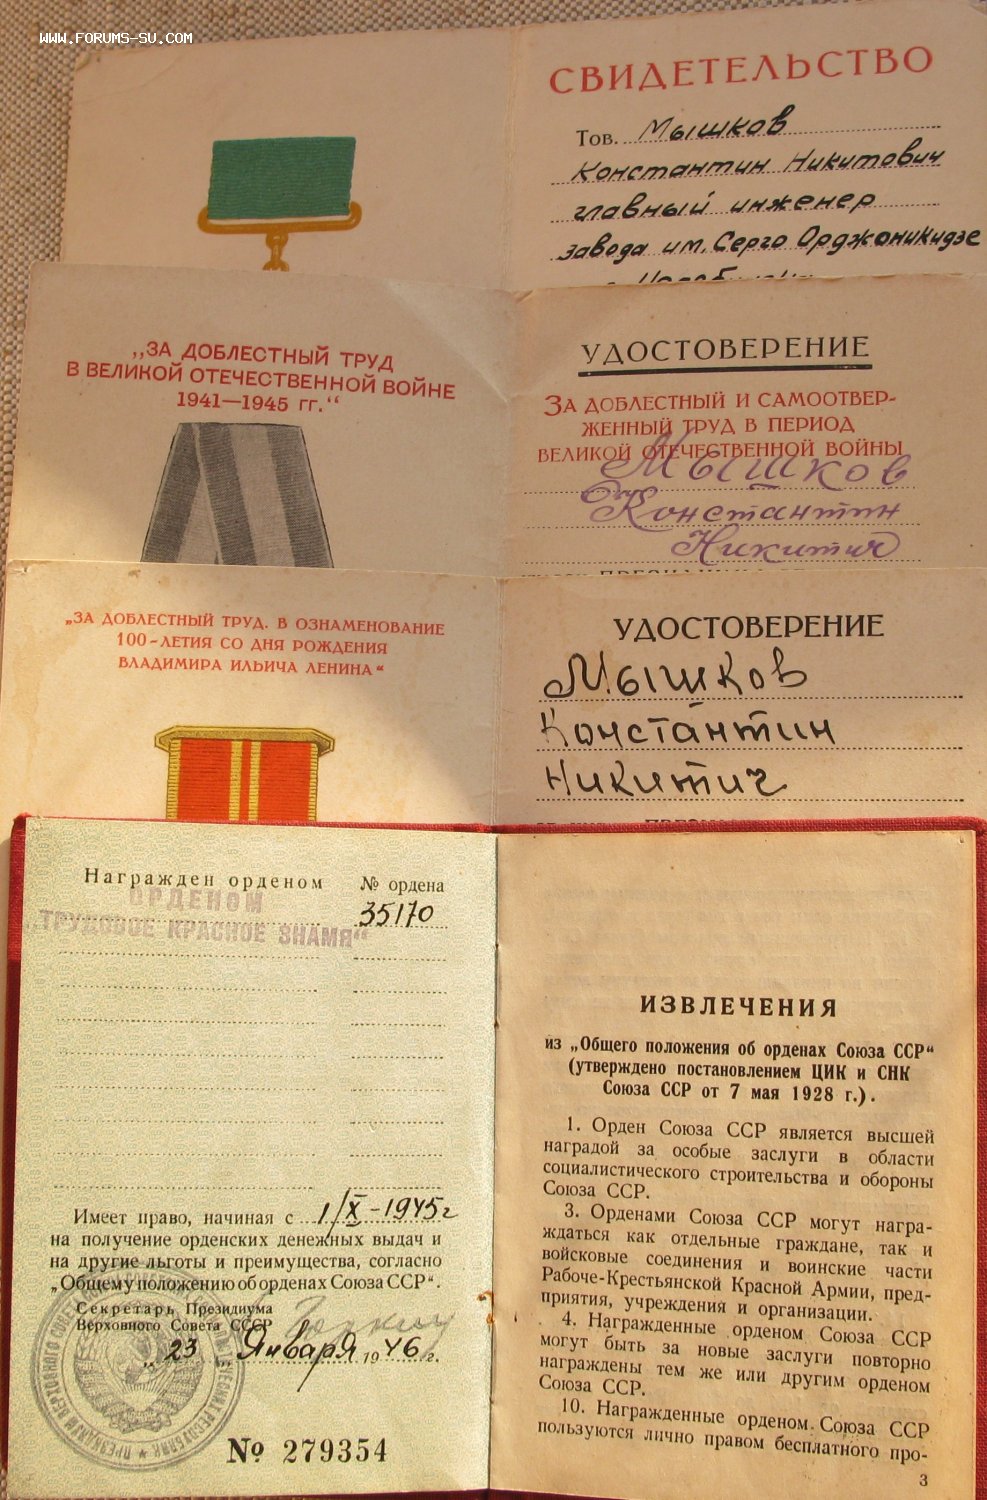 WWW.FORUMS-SU.COM
СВИДЕТЕЛЬСТВО
Тов. Мышков
Константин Никитович
главный инженер
завода им. Серго Орджоникидзе
„ЗА ДОБЛЕСТНЫЙ ТРУД
В ВЕЛИКОЙ ОТЕЧЕСТВЕННОЙ ВОЙНЕ
1941—1945 гг.“
УДОСТОВЕРЕНИЕ
ЗА ДОБЛЕСТНЫЙ И САМООТВЕР-
ЖЕННЫЙ ТРУД В ПЕРИОД
ВЕЛИКОЙ ОТЕЧЕСТВЕННОЙ ВОЙНЫ
Мышков
Константин
Никитич
„ЗА ДОБЛЕСТНЫЙ ТРУД. В ОЗНАМЕНОВАНИЕ
100-ЛЕТИЯ СО ДНЯ РОЖДЕНИЯ
ВЛАДИМИРА ИЛЬИЧА ЛЕНИНА“
УДОСТОВЕРЕНИЕ
Мышков
Константин
Никитич
Награжден орденом № ордена
ОРДЕНОМ 35170
„ТРУДОВОЕ КРАСНОЕ ЗНАМЯ“
Имеет право, начиная с 1/X-1945г
на получение орденских денежных выдач и
на другие льготы и преимущества, согласно
„Общему положению об орденах Союза ССР“.
Секретарь Президиума
Верховного Совета СССР
„23„ Января 1946 г.
№ 279354
ИЗВЛЕЧЕНИЯ
из „Общего положения об орденах Союза ССР“
(утверждено постановлением ЦИК и СНК
Союза ССР от 7 мая 1928 г.).
1. Орден Союза ССР является высшей
наградой за особые заслуги в области
социалистического строительства и обороны
Союза ССР.
3. Орденами Союза ССР могут награ-
ждаться как отдельные граждане, так и
войсковые соединения и воинские части
Рабоче-Крестьянской Красной Армии, пред-
приятия, учреждения и организации.
4. Награжденные орденом Союза ССР
могут быть за новые заслуги повторно
награждены тем же или другим орденом
Союза ССР.
10. Награжденные орденом Союза ССР
пользуются лично правом бесплатного про-
3